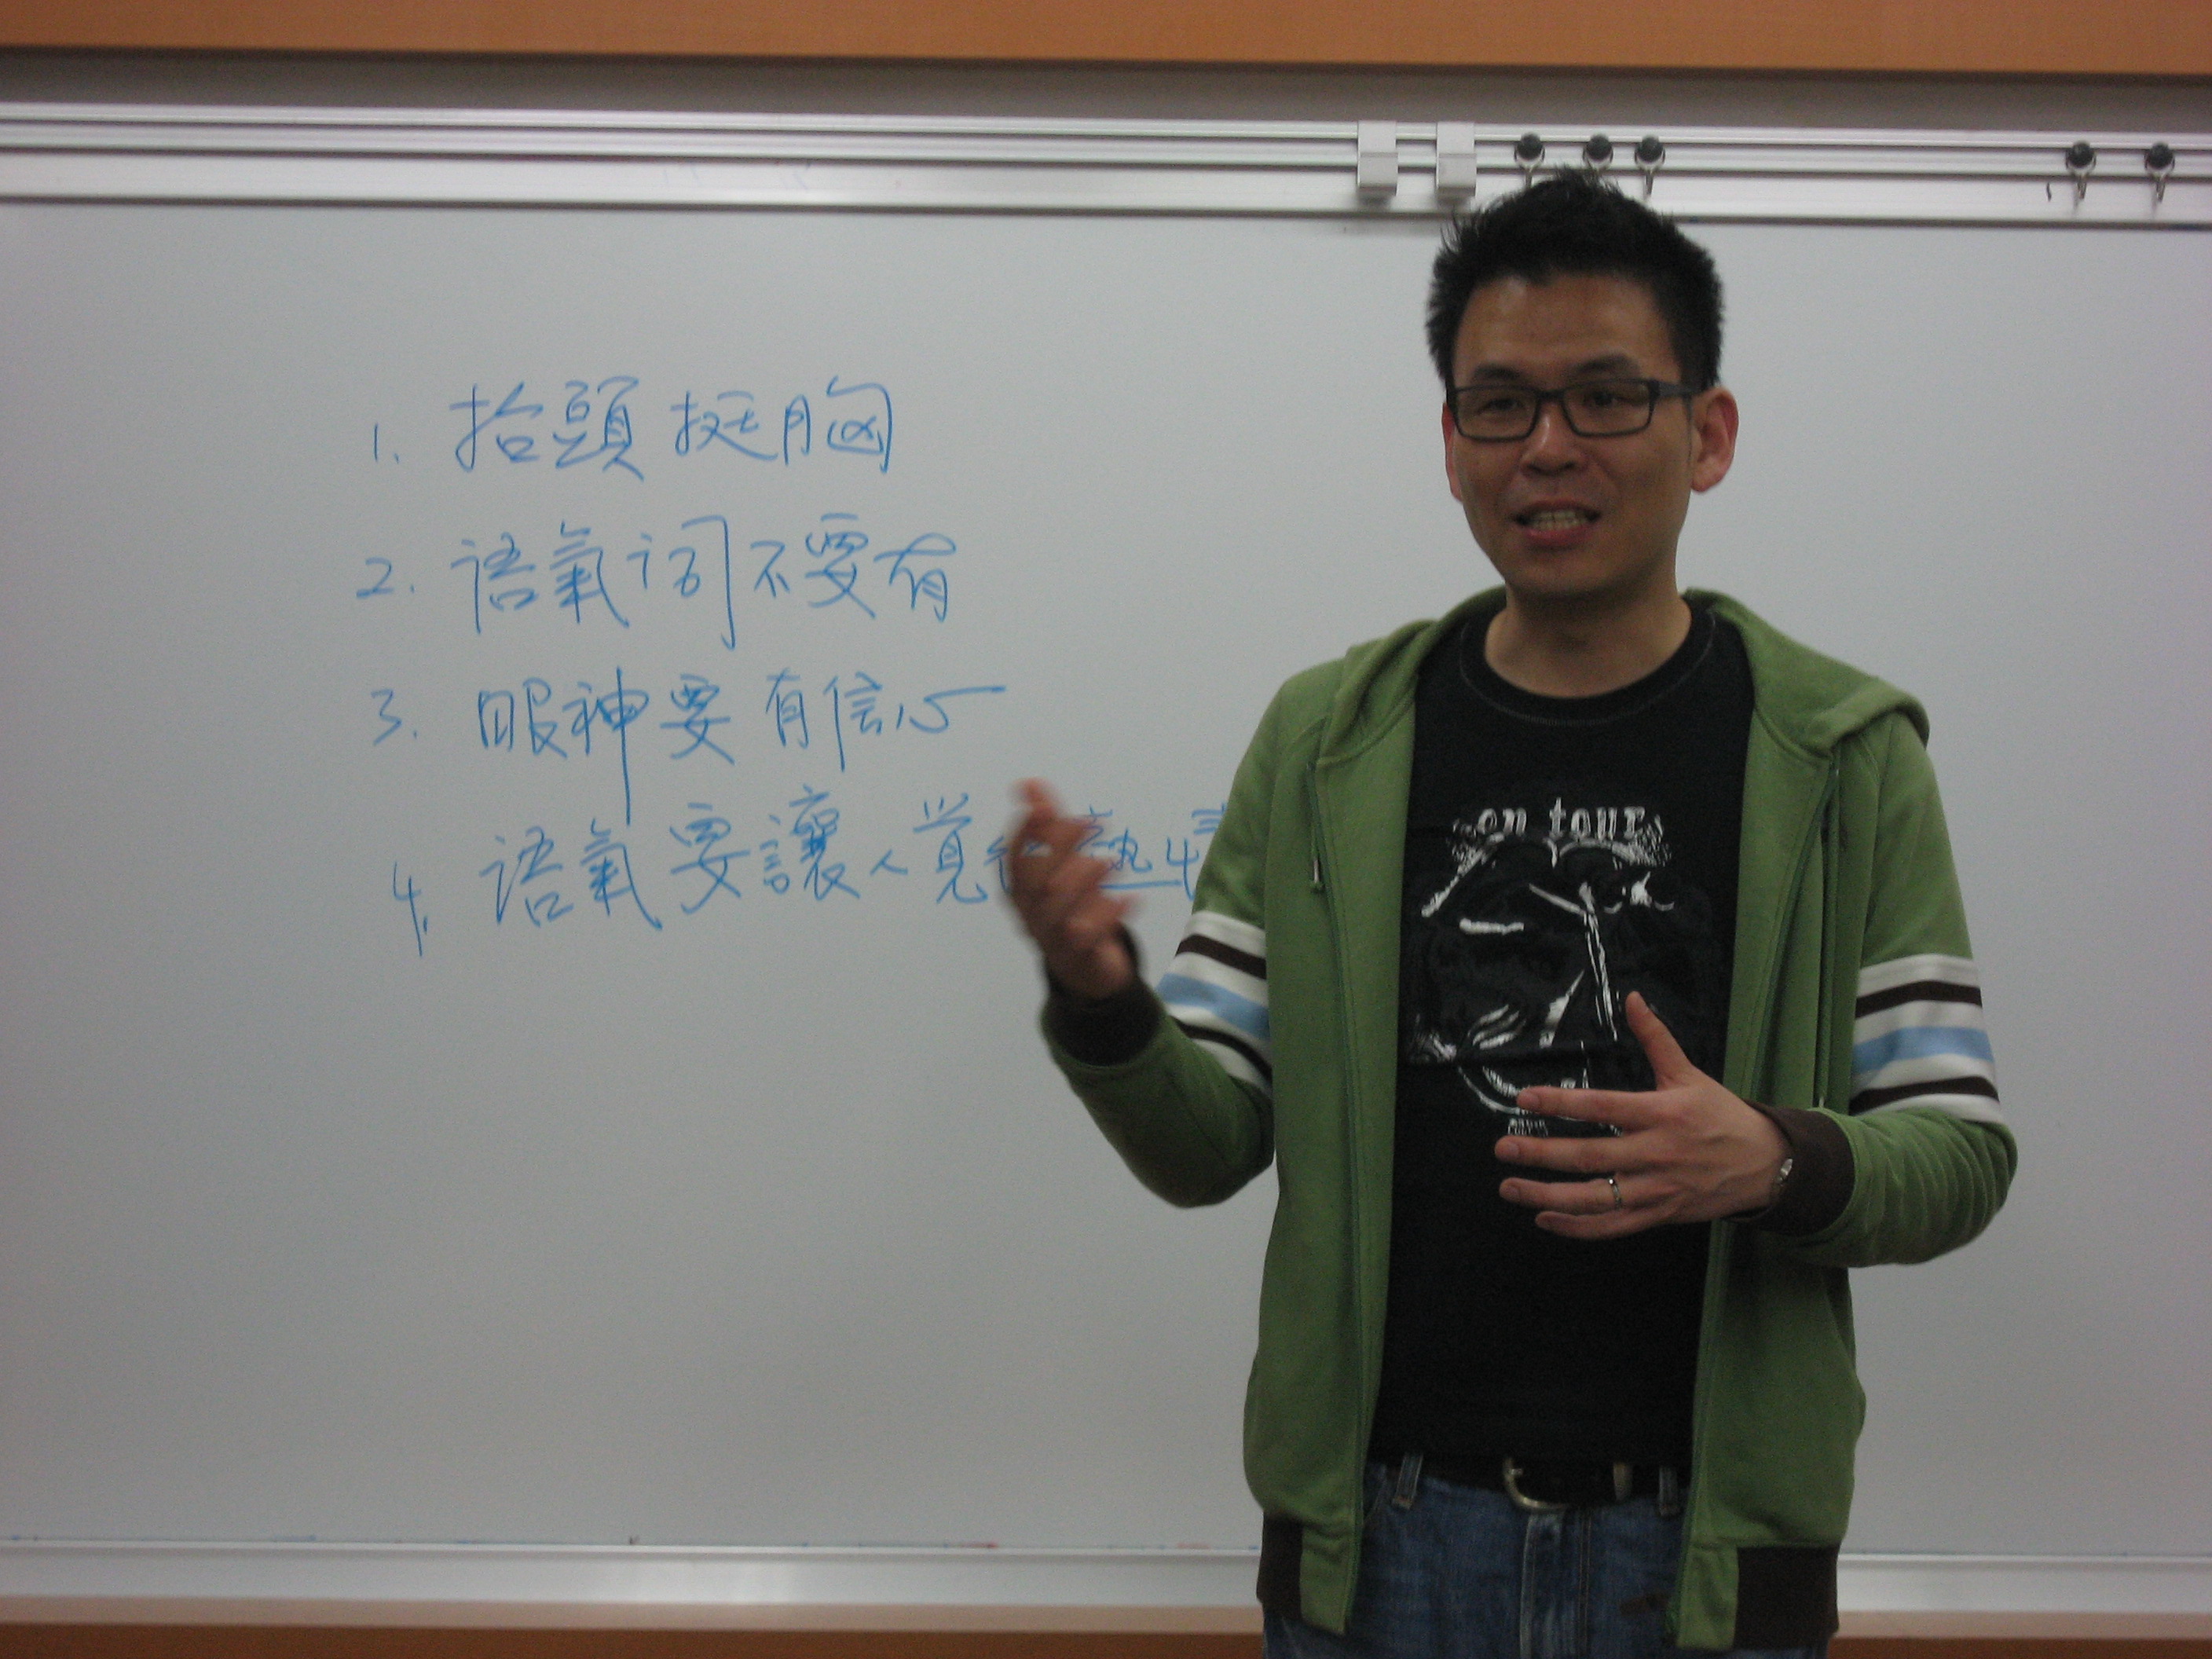 1. 抬頭挺胸
2. 语氣词不要有
3. 眼神要有信心
4. 语氣要讓人覚 熱
on tour